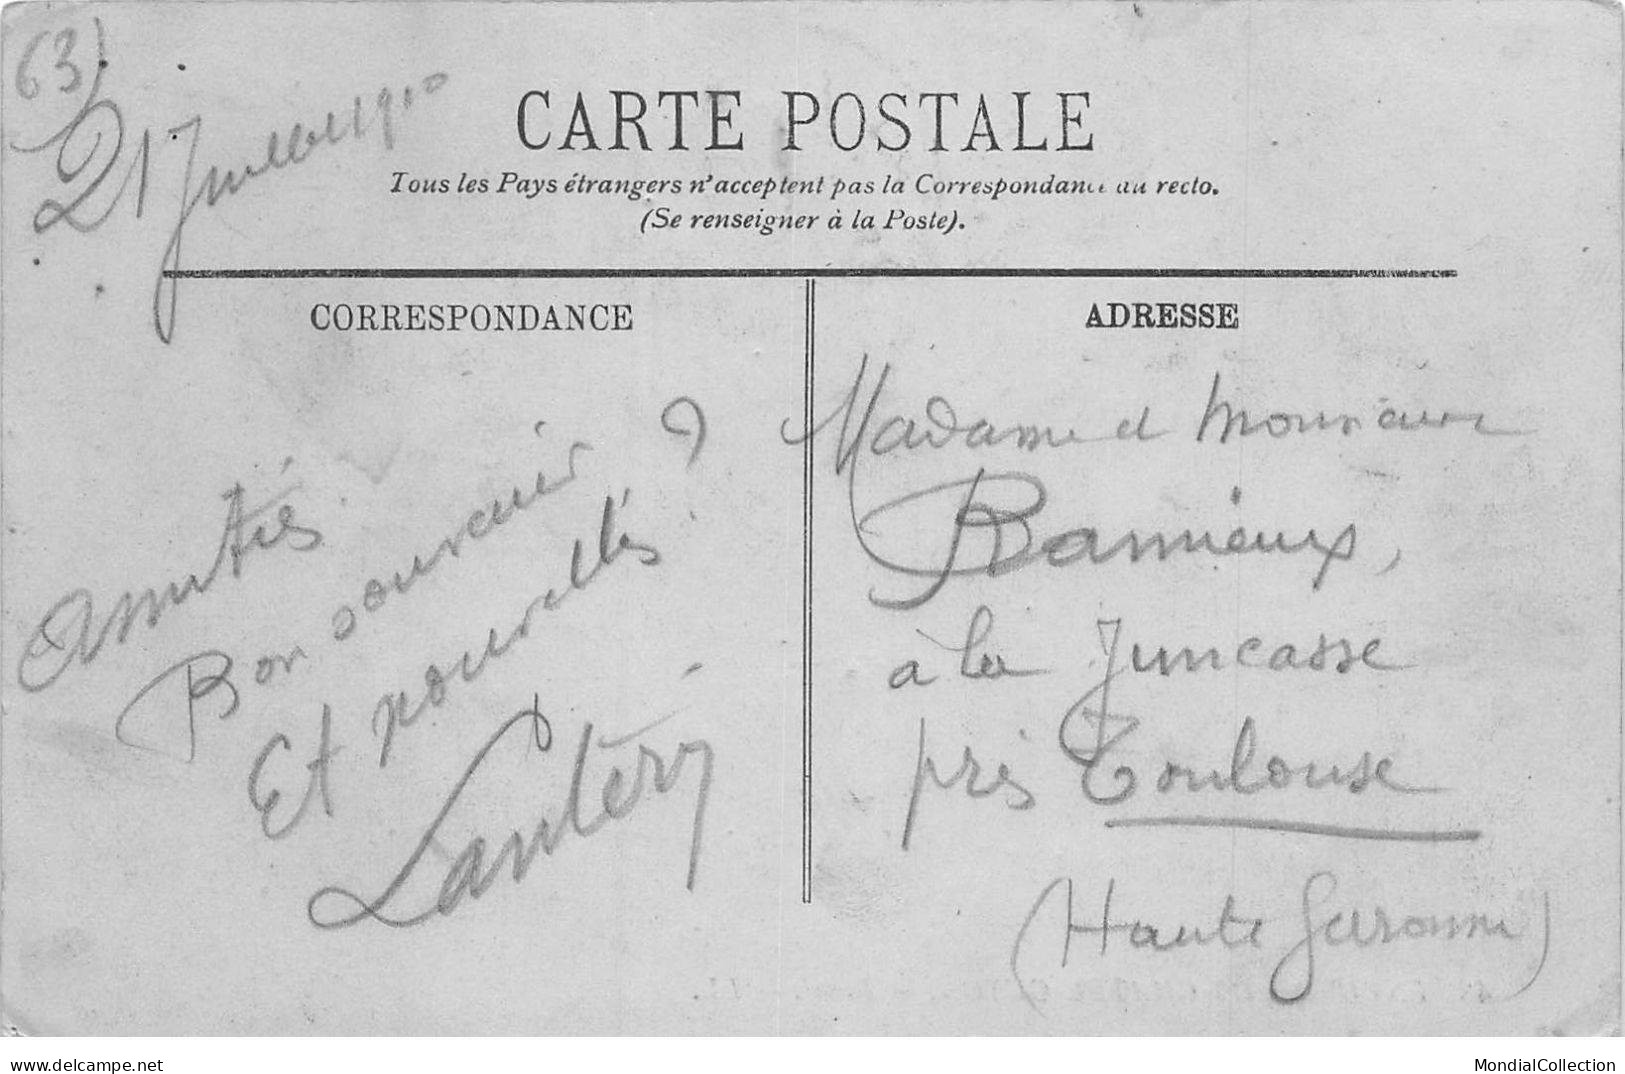 63)
21 Juillet 1910
CARTE POSTALE
Tous les Pays étrangers n'acceptent pas la Correspondance au recto.
(Se renseigner à la Poste).
CORRESPONDANCE
Amitiés
Bon souvenir
Et nouvelles ?
Lantéry
ADRESSE
Madame et Monsieur
Ramieux,
à la Juncasse
près Toulouse
(Haute Garonne)
delcampe.net
MondialCollection